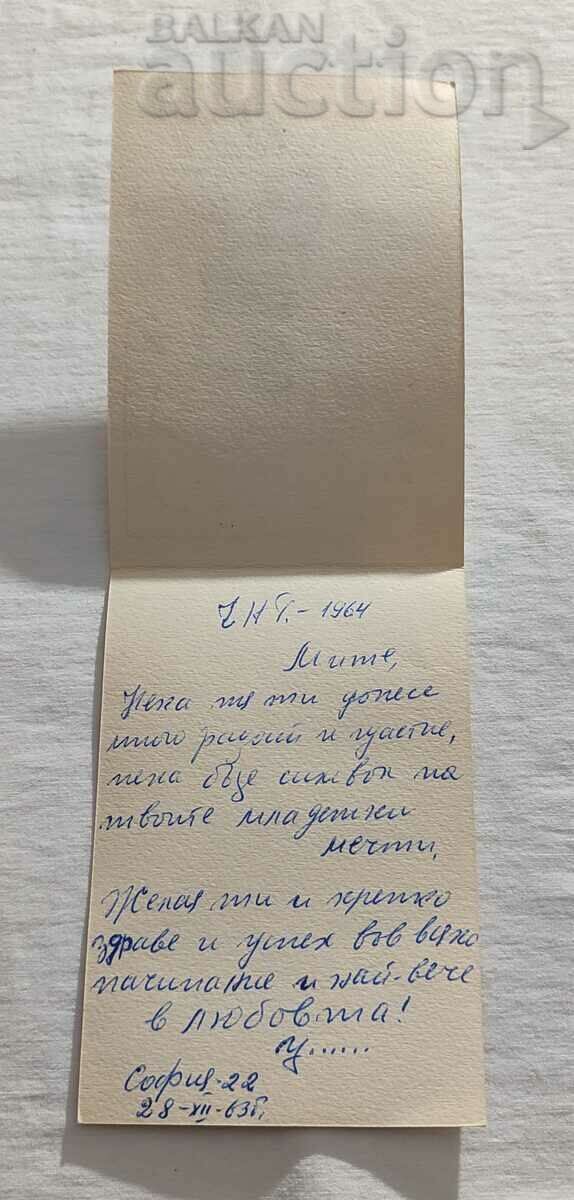 BALKAN
auction
ЧНГ.-1964
Мите,
Нека тя ти донесе
много радост и щастие,
нека бъде символ на
твоите младежки
мечти.
Желая ти и крепко
здраве и успех във всяко
начинание и най-вече
в любовта!
У......
София-22
28-XII-63г.